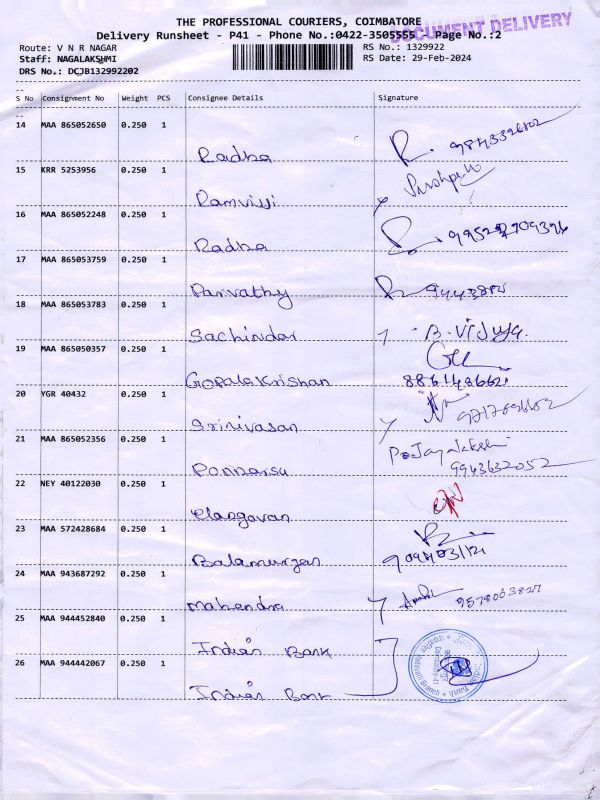 THE PROFESSIONAL COURIERS, COIMBATORE
DOCUMENT DELIVERY
Delivery Runsheet - P41 - Phone No.:0422-3505555 Page No.:2
Route: V N R NAGAR
RS No.: 1329922
Staff: NAGALAKSHMI
RS Date: 29-Feb-2024
DRS No.: DCJB132992202
S No Consignment No Weight PCS Consignee Details Signature
14 MAA 865052650 0.250 1
Radha
15 KRR 5253956 0.250 1
Ramviji
16 MAA 865052248 0.250 1
Radha
17 MAA 865053759 0.250 1
Parvathy
18 MAA 865053783 0.250 1
Sachindar B. Vidya
19 MAA 865050357 0.250 1
Gopala Krishnan
20 YGR 40432 0.250 1
Srinivasan
21 MAA 865052356 0.250 1
Ponnarsu 9943632052
22 NEY 40122030 0.250 1
elangovan
23 MAA 572428684 0.250 1
Balamurgan
24 MAA 943687292 0.250 1
Mahendra 9578003827
25 MAA 944452840 0.250 1
Indian Bank
26 MAA 944442067 0.250 1
Indian Bank